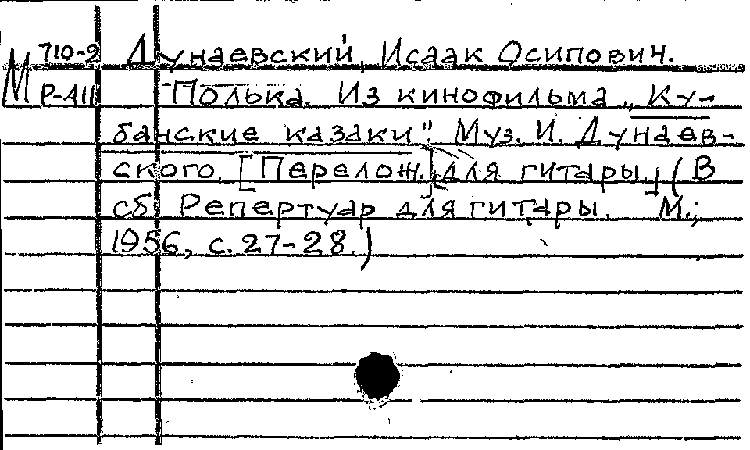 М 710-2 Дунаевский, Исаак Осипович.
Р-411 Полька. Из кинофильма „Ку-
банские казаки". Муз. И. Дунаев-
ского. [Перелож.] для гитары. (В
сб. Репертуар для гитары. М.,
1956, с. 27-28.)